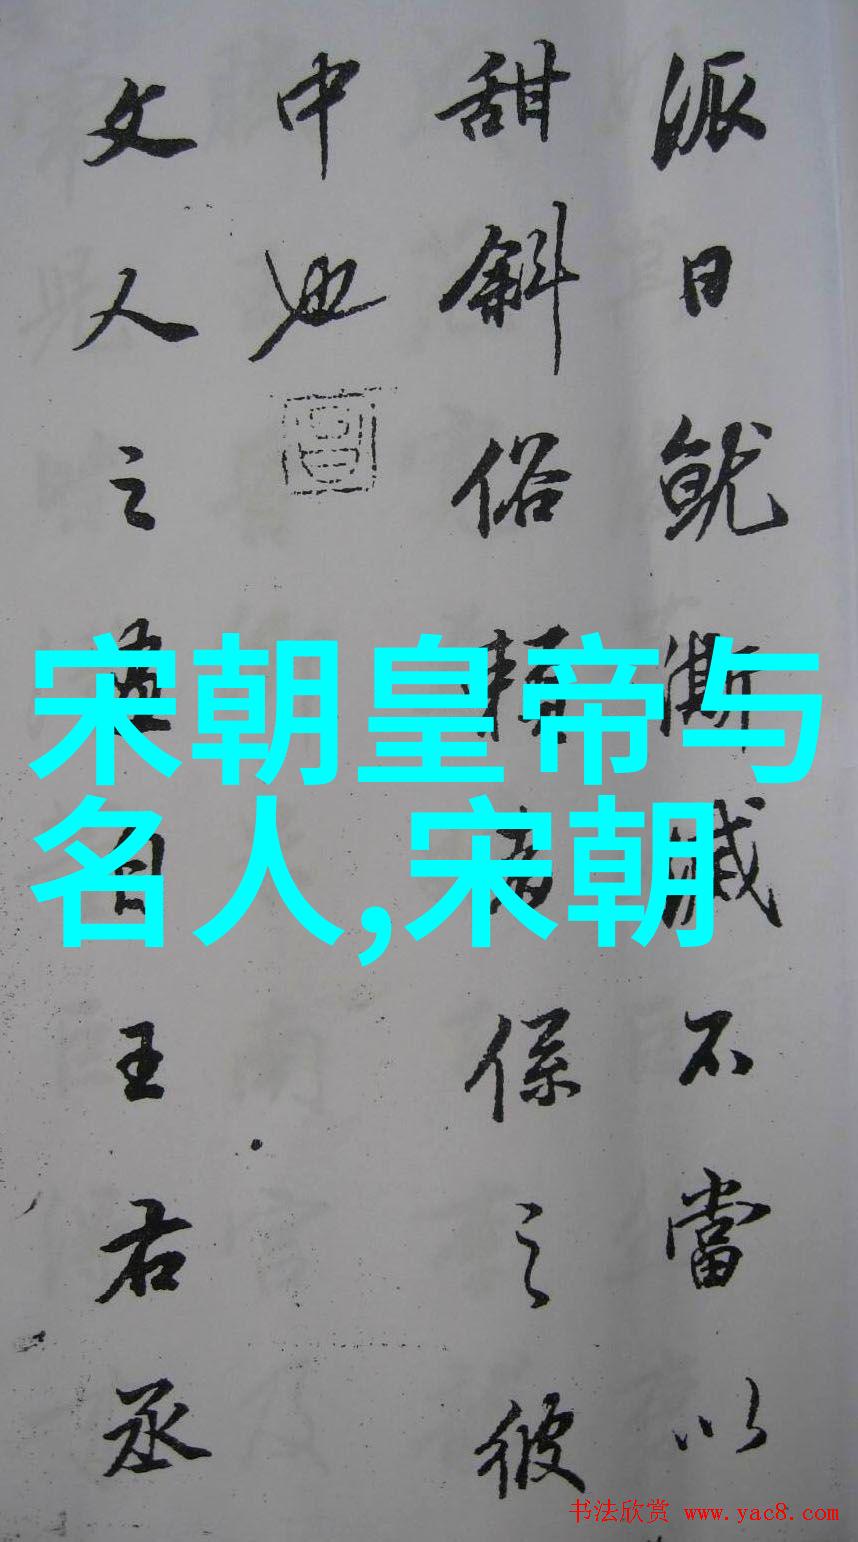 派日就澌滅不當以
甜斜俗賴者係之彼
中也
文人之畫自王右丞
宋朝皇帝与
名人,宋朝
书法欣赏 www.yac8.com